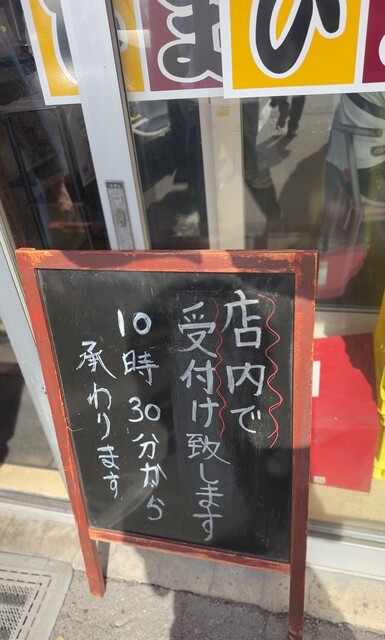 店内で
受付け致します
10時30分から
承わります